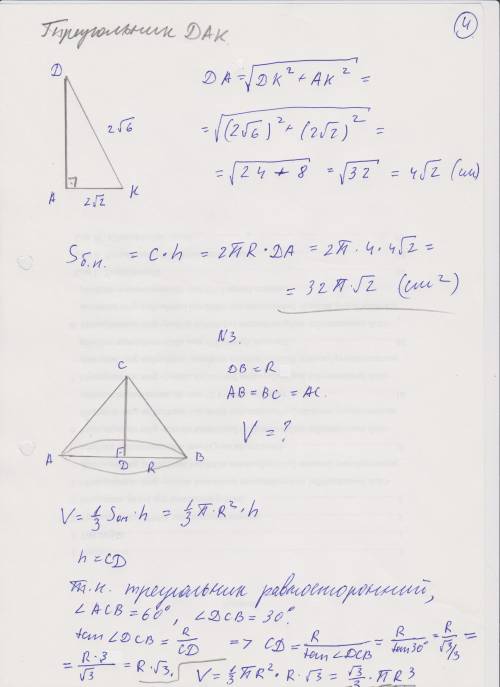 4
Треугольник DAK.
D
2√6
A
2√2
K
DA = √(DK² + AK²) =
= √((2√6)² + (2√2)²) =
= √(24 + 8) = √32 = 4√2 (см)
Sб.п. = C·h = 2πR·DA = 2π·4·4√2 =
= 32π·√2 (см²)
N3.
C
A
D
R
B
DB = R
AB = BC = AC.
V = ?
V = 1/3 Sосн·h = 1/3 π·R²·h
h = CD
т.к. треугольник равносторонний,
∠ACB = 60°, ∠DCB = 30°.
tan∠DCB = R/CD => CD = R/tan∠DCB = R/tan30° = R/(√3/3) =
= R·3/√3 = R·√3. V = 1/3 πR²·R·√3 = √3/3·πR³